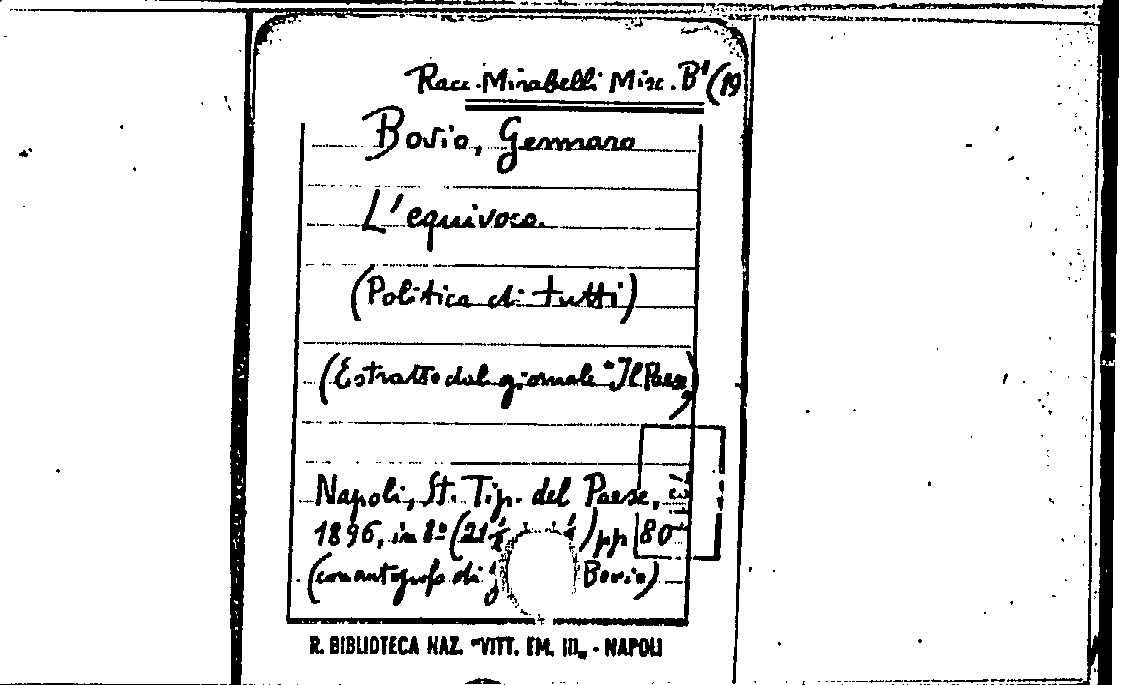 Racc. Mirabelli Misc. B¹(19
Bovio, Gennaro
L'equivoco.
(Politica di tutti)
(Estratto dal giornale "Il Paese„)
Napoli, St. Tip. del Paese,
1896, in 8º (21 ) pp 80
(con autografo di Bovio)
R. BIBLIOTECA NAZ. "VITT. EM. III„ - NAPOLI